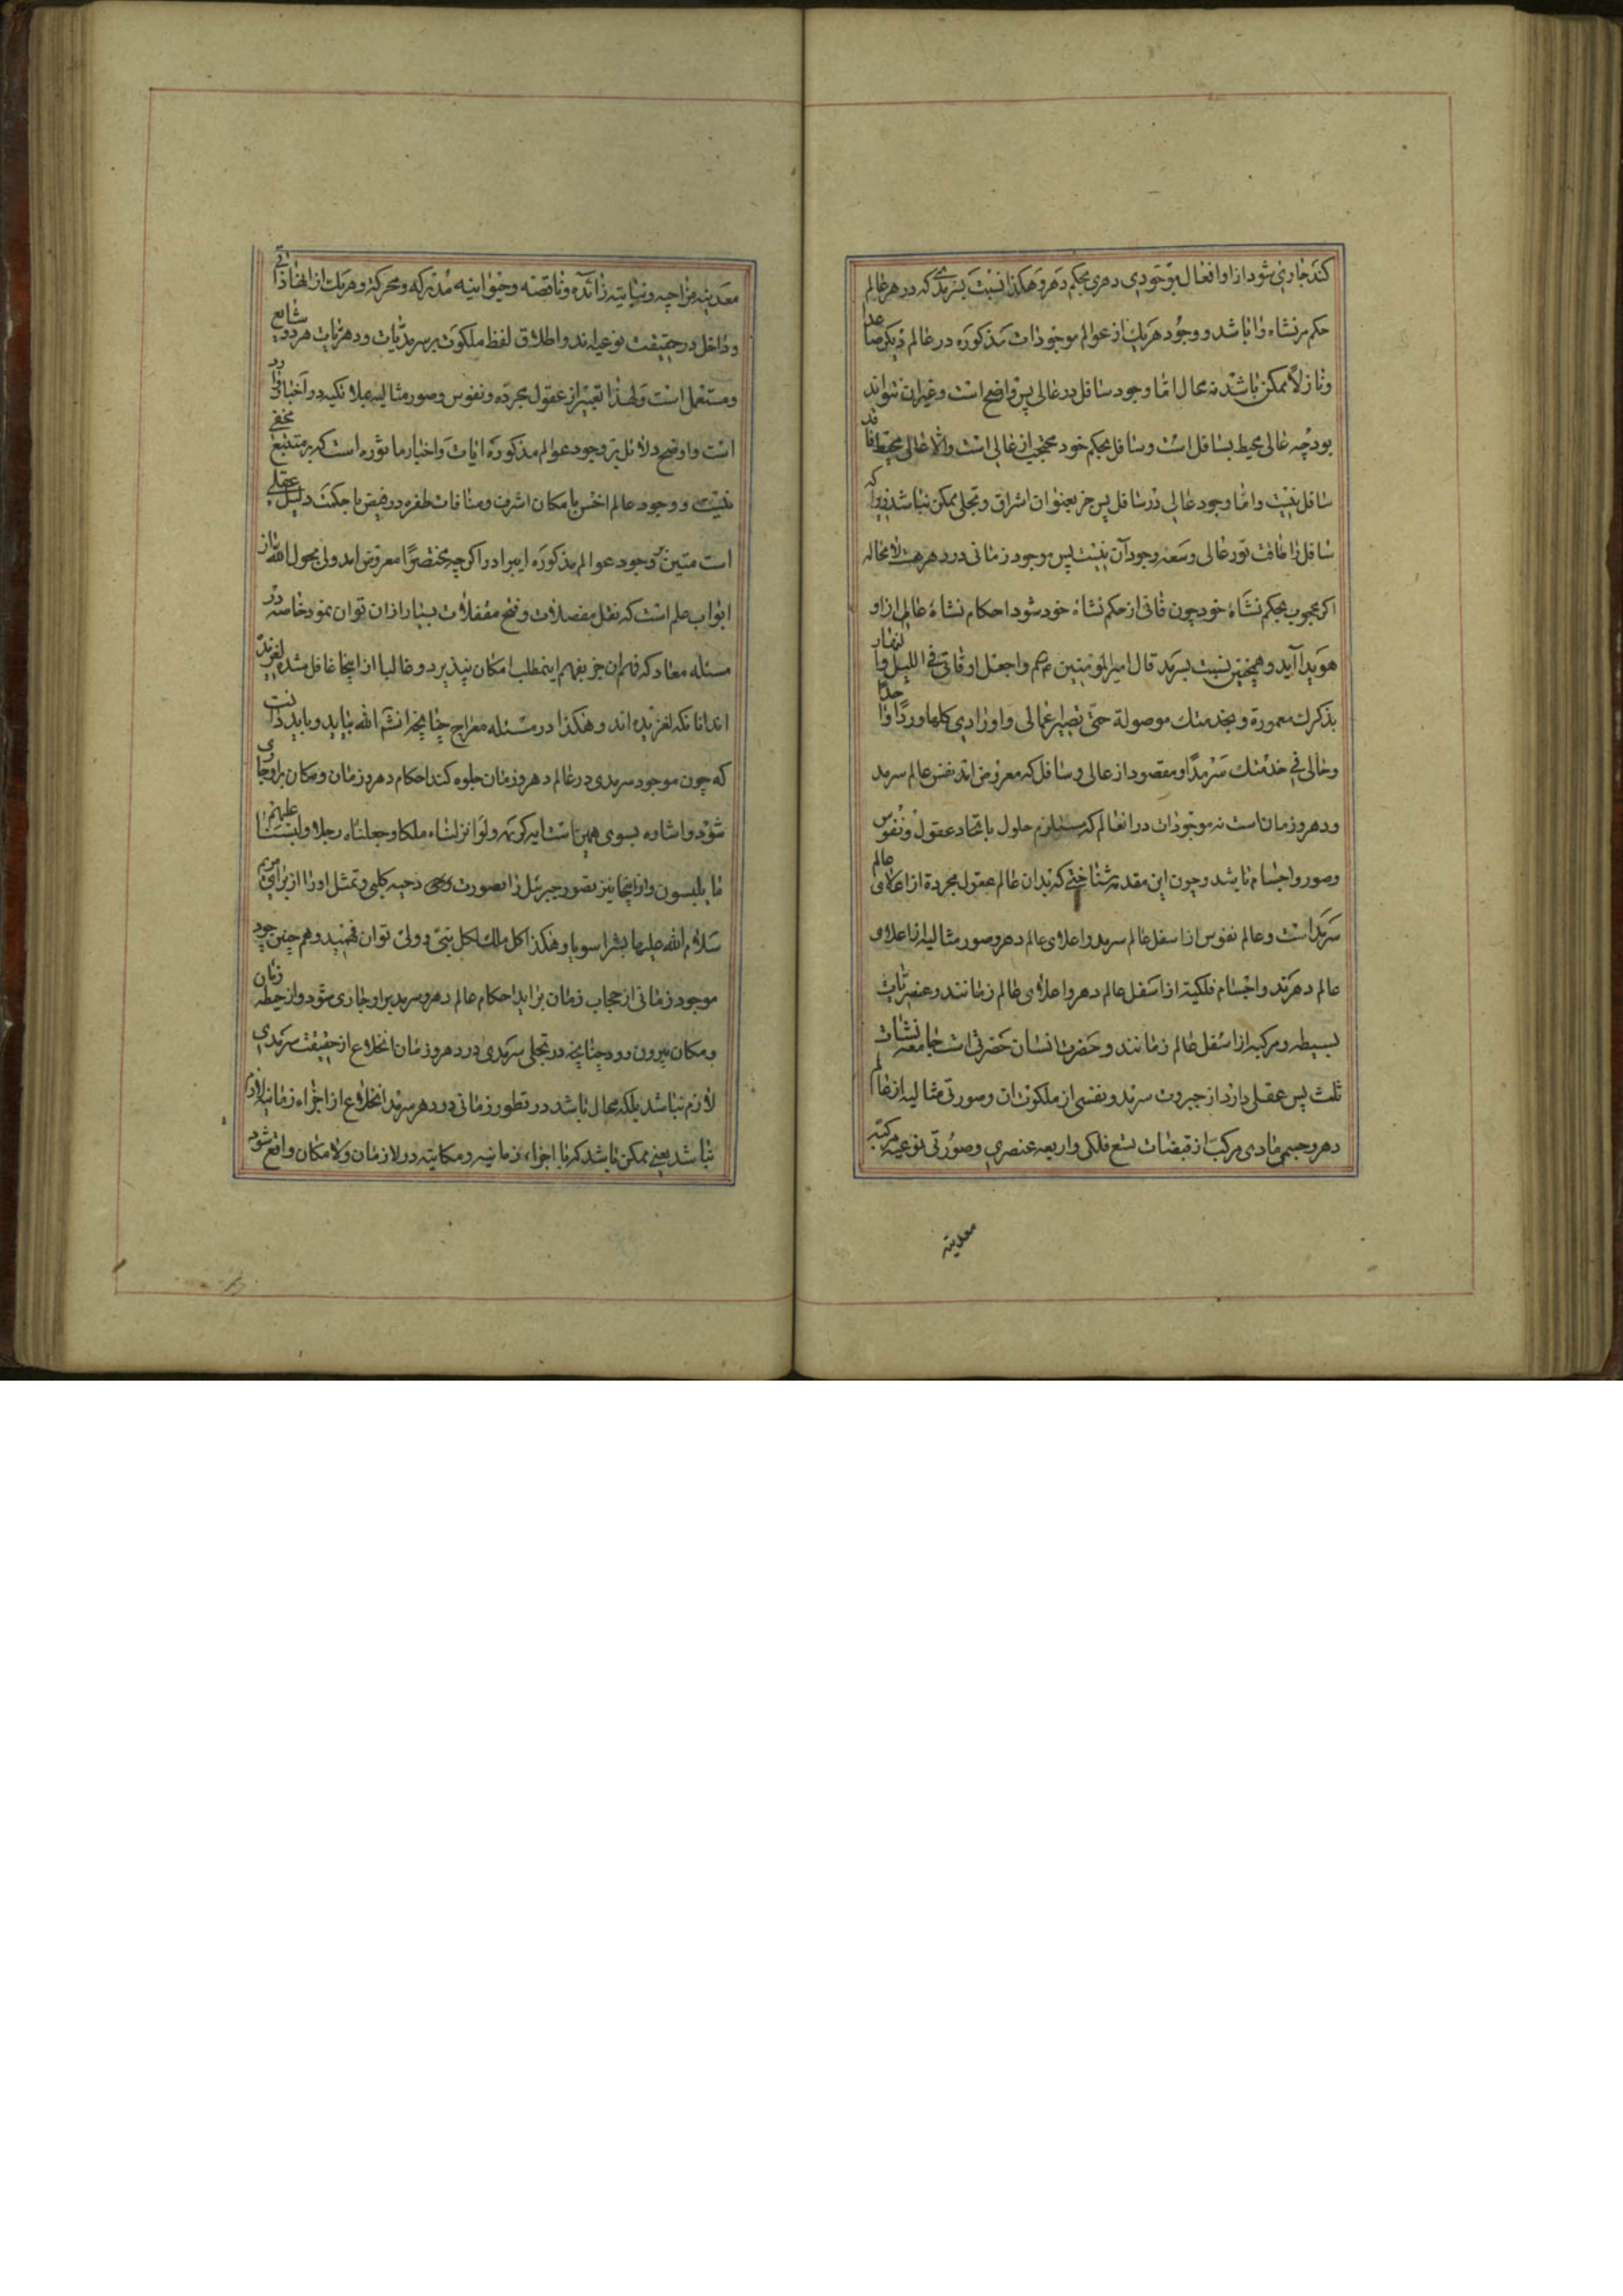 کند جاری شود از او افعال بوجودی دهری بحکم دهر و هکذا نسبت بسرمدی که در هر عالم
حکم بر نشاء باشد و وجود هر یک از عوالم موجودات مذکوره در عالم دیگر صاعدا
و نازلاً ممکن باشد نه محال اما وجود سافل در عالی پس واضح است و غیر آن نتواند
بود چه عالی محیط بسافل است و سافل بحکم خود محتجب از عالی است والا عالی محیط فاقد
سافل نیست و اما وجود عالی در سافل پس جز بعنوان اشراق و تجلی ممکن نباشد زیرا که
سافل را طاقت نور عالی و سعه وجود آن نیست پس موجود زمانی در دهر هست لا محاله
اگر محجوب بحکم نشاه خود چون فانی از حکم نشاه خود شود احکام نشاه عالی از او
هویدا آید و همچنین نسبت بسرمد قال امیر المؤمنین واجعل اوقاتی فی اللیل و النهار
بذکرک معمورة و بخدمتک موصولة حتی تصیر اعمالی و اورادی کلها وردا واحدا
و حالی فی خدمتک سرمدا و مقصود از عالی و سافل که معروض اند نفس عالم سرمد
و دهر و زمان است نه موجودات در انعالم که مستلزم حلول یا اتحاد عقول و نفوس
و صور و اجسام باشد و چون این مقدمه شناختی که بدان عالم عقول مجردة از اعلای عالم
سرمد است و عالم نفوس از اسفل عالم سرمد و اعلای عالم دهر و صور مثالیه از اعلای
عالم دهرند و اجسام فلکیه از اسفل عالم دهر و اعلای عالم زمانند و عنصریات
بسیطه و مرکبه از اسفل عالم زمانند و حضرت انسان حضرتی است جامعه نشات
ثلث پس عقلی دارد از جبروت سرمد و نفسی از ملکوت ان و صورتی مثالیه از عالم
دهر و جسمی مادی مرکب از قبضات تسع فلکی و اربعه عنصری و صورتی نوعیه مرکبه
معدنیه
معدنیه مزاجیه و نباتیه زائده و ناقصه و حیوانیه مدرکه و محرکه و هر یک از اینها ذاتی
و داخل در حقیقت نوعیه اند و اطلاق لفظ ملکوت بر سرمدیات و دهریات هر دو شایع
و مستعمل است و لهذا تعبیر از عقول مجرده و نفوس و صور مثالیه بملائکه در اخبار وارد
است و اوضح دلائل بر وجود عوالم مذکوره ایات و اخبار ماثوره است که بر متتبع مخفی
نیست و وجود عالم اخس با مکان اشرف و منافات طفره در فیض با حکمت دلیل عقلی
است متین بر وجود عوالم مذکوره ایراد اگر چه مختصرا معروض امد ولی بحول الله باز
ابواب علم است که نقل مفصلات و فتح مقفلات بسیار از ان توان نمود خاصه در
مسئله معاد که فهم ان جز بفهم اینمطلب امکان نپذیرد و غالبا از اینجا غافل شده لغزیده
اند انانکه لغزیده اند و هکذا در مسئله معراج چنانچه انشم الله بیاید و باید دانست
که چون موجود سرمدی در عالم دهر و زمان جلوه کند احکام دهر و زمان و مکان بر او جاری
شود و اشاره بسوی همین است ایه کریمه ولو انزلناه ملکا و جعلناه رجلا وللبسنا علیهم
ما یلبسون و از اینجا نیز تصور جبرئیل را بصورت دحیه کلبی و تمثل او را از برای مریم
سلام الله علیها بشرا سویا و هکذا کل ملک لکل نبی و ولی توان فهمید و هم چنین چون
موجود زمانی از حجاب زمان براید احکام عالم دهر و سرمد بر او جاری شود و از حیطه زمان
و مکان بیرون رود چنانچه در تجلی سرمدی در دهر و زمان انخلاع از حقیقت سرمدی
لازم نباشد بلکه محال باشد در تطور زمانی در دهر و سرمد انخلاع از اجزاء زمانیه لازم
نباشد یعنی ممکن باشد که با اجزاء زمانیه و مکانیه در لازمان و لامکان واقع شود